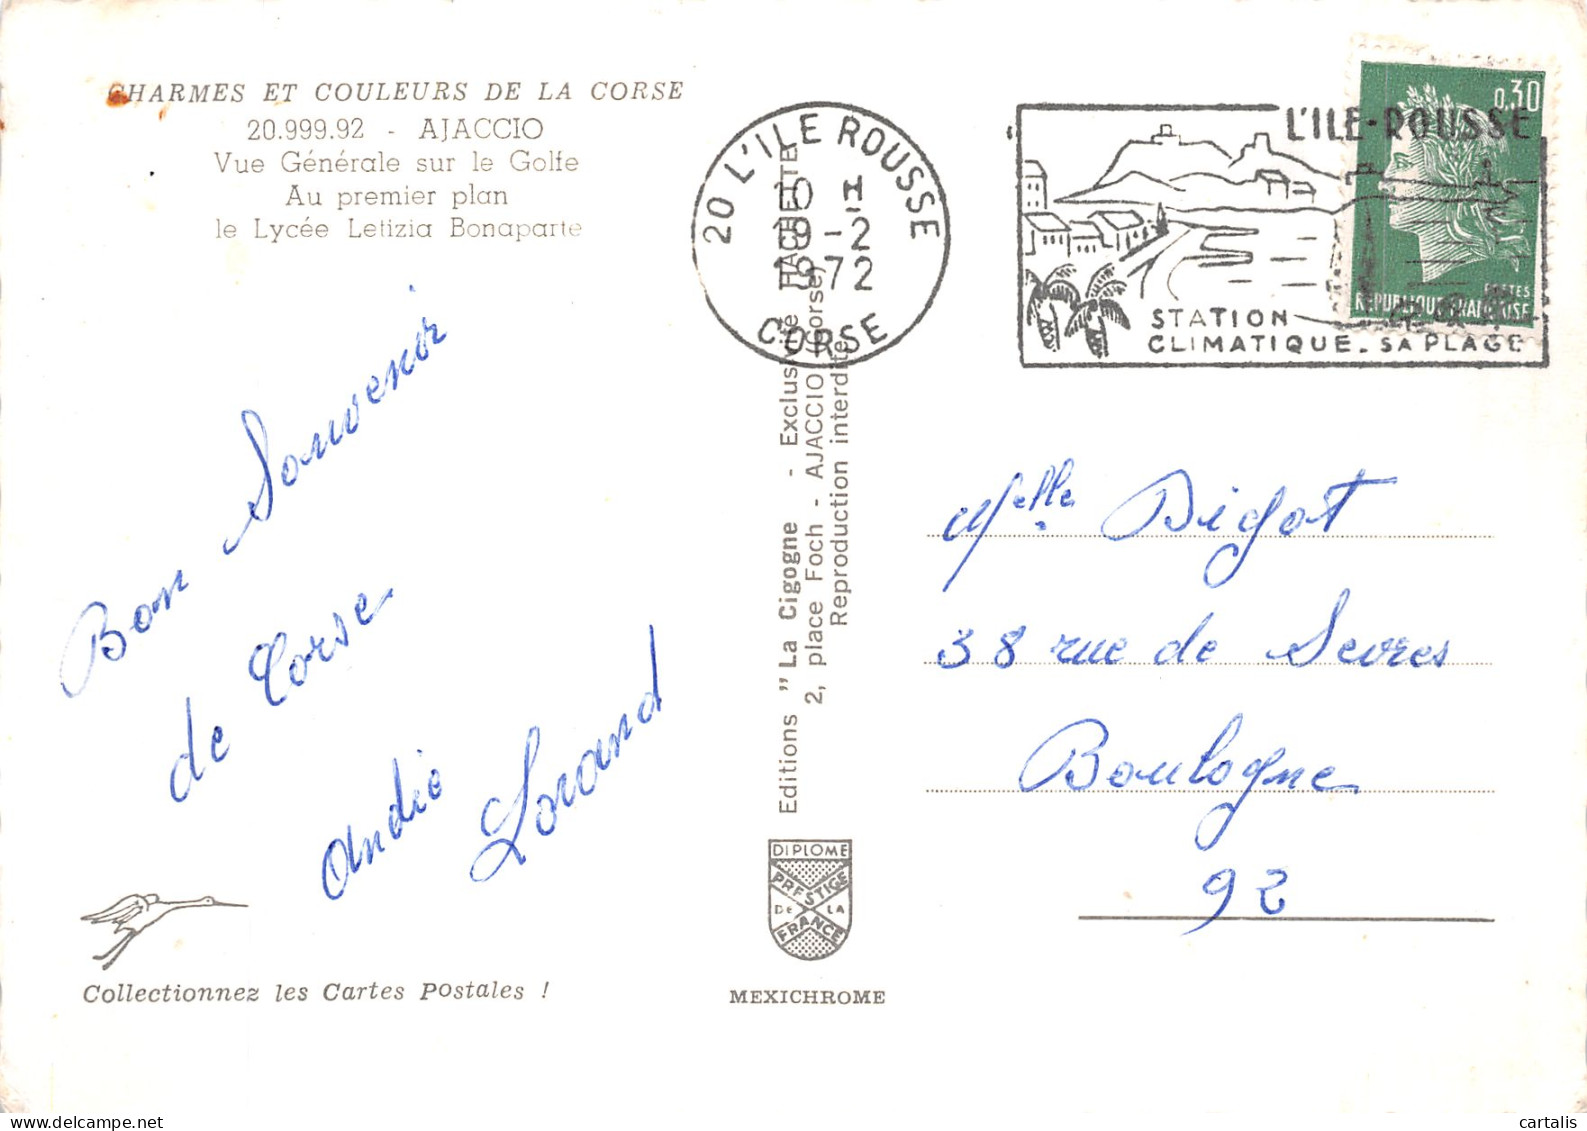 CHARMES ET COULEURS DE LA CORSE
20.999.92 - AJACCIO
Vue Générale sur le Golfe
Au premier plan
le Lycée Letizia Bonaparte
Bon Souvenir
de Corse
Lorand
Collectionnez les Cartes Postales !
Editions "La Cigogne - HACHETTE
2, place Foch - AJACCIO (Corse)
Reproduction interdite
DIPLOME
PRESTIGE
DE LA
FRANCE
MEXICHROME
20 L'ILE ROUSSE
10 H
19-2
1972
CORSE
L'ILE-ROUSSE
STATION
CLIMATIQUE. SA PLAGE
0,30
POSTES
REPUBLIQUE FRANCAISE
Melle Digot
38 rue de Sevres
Boulogne
92
cartalis